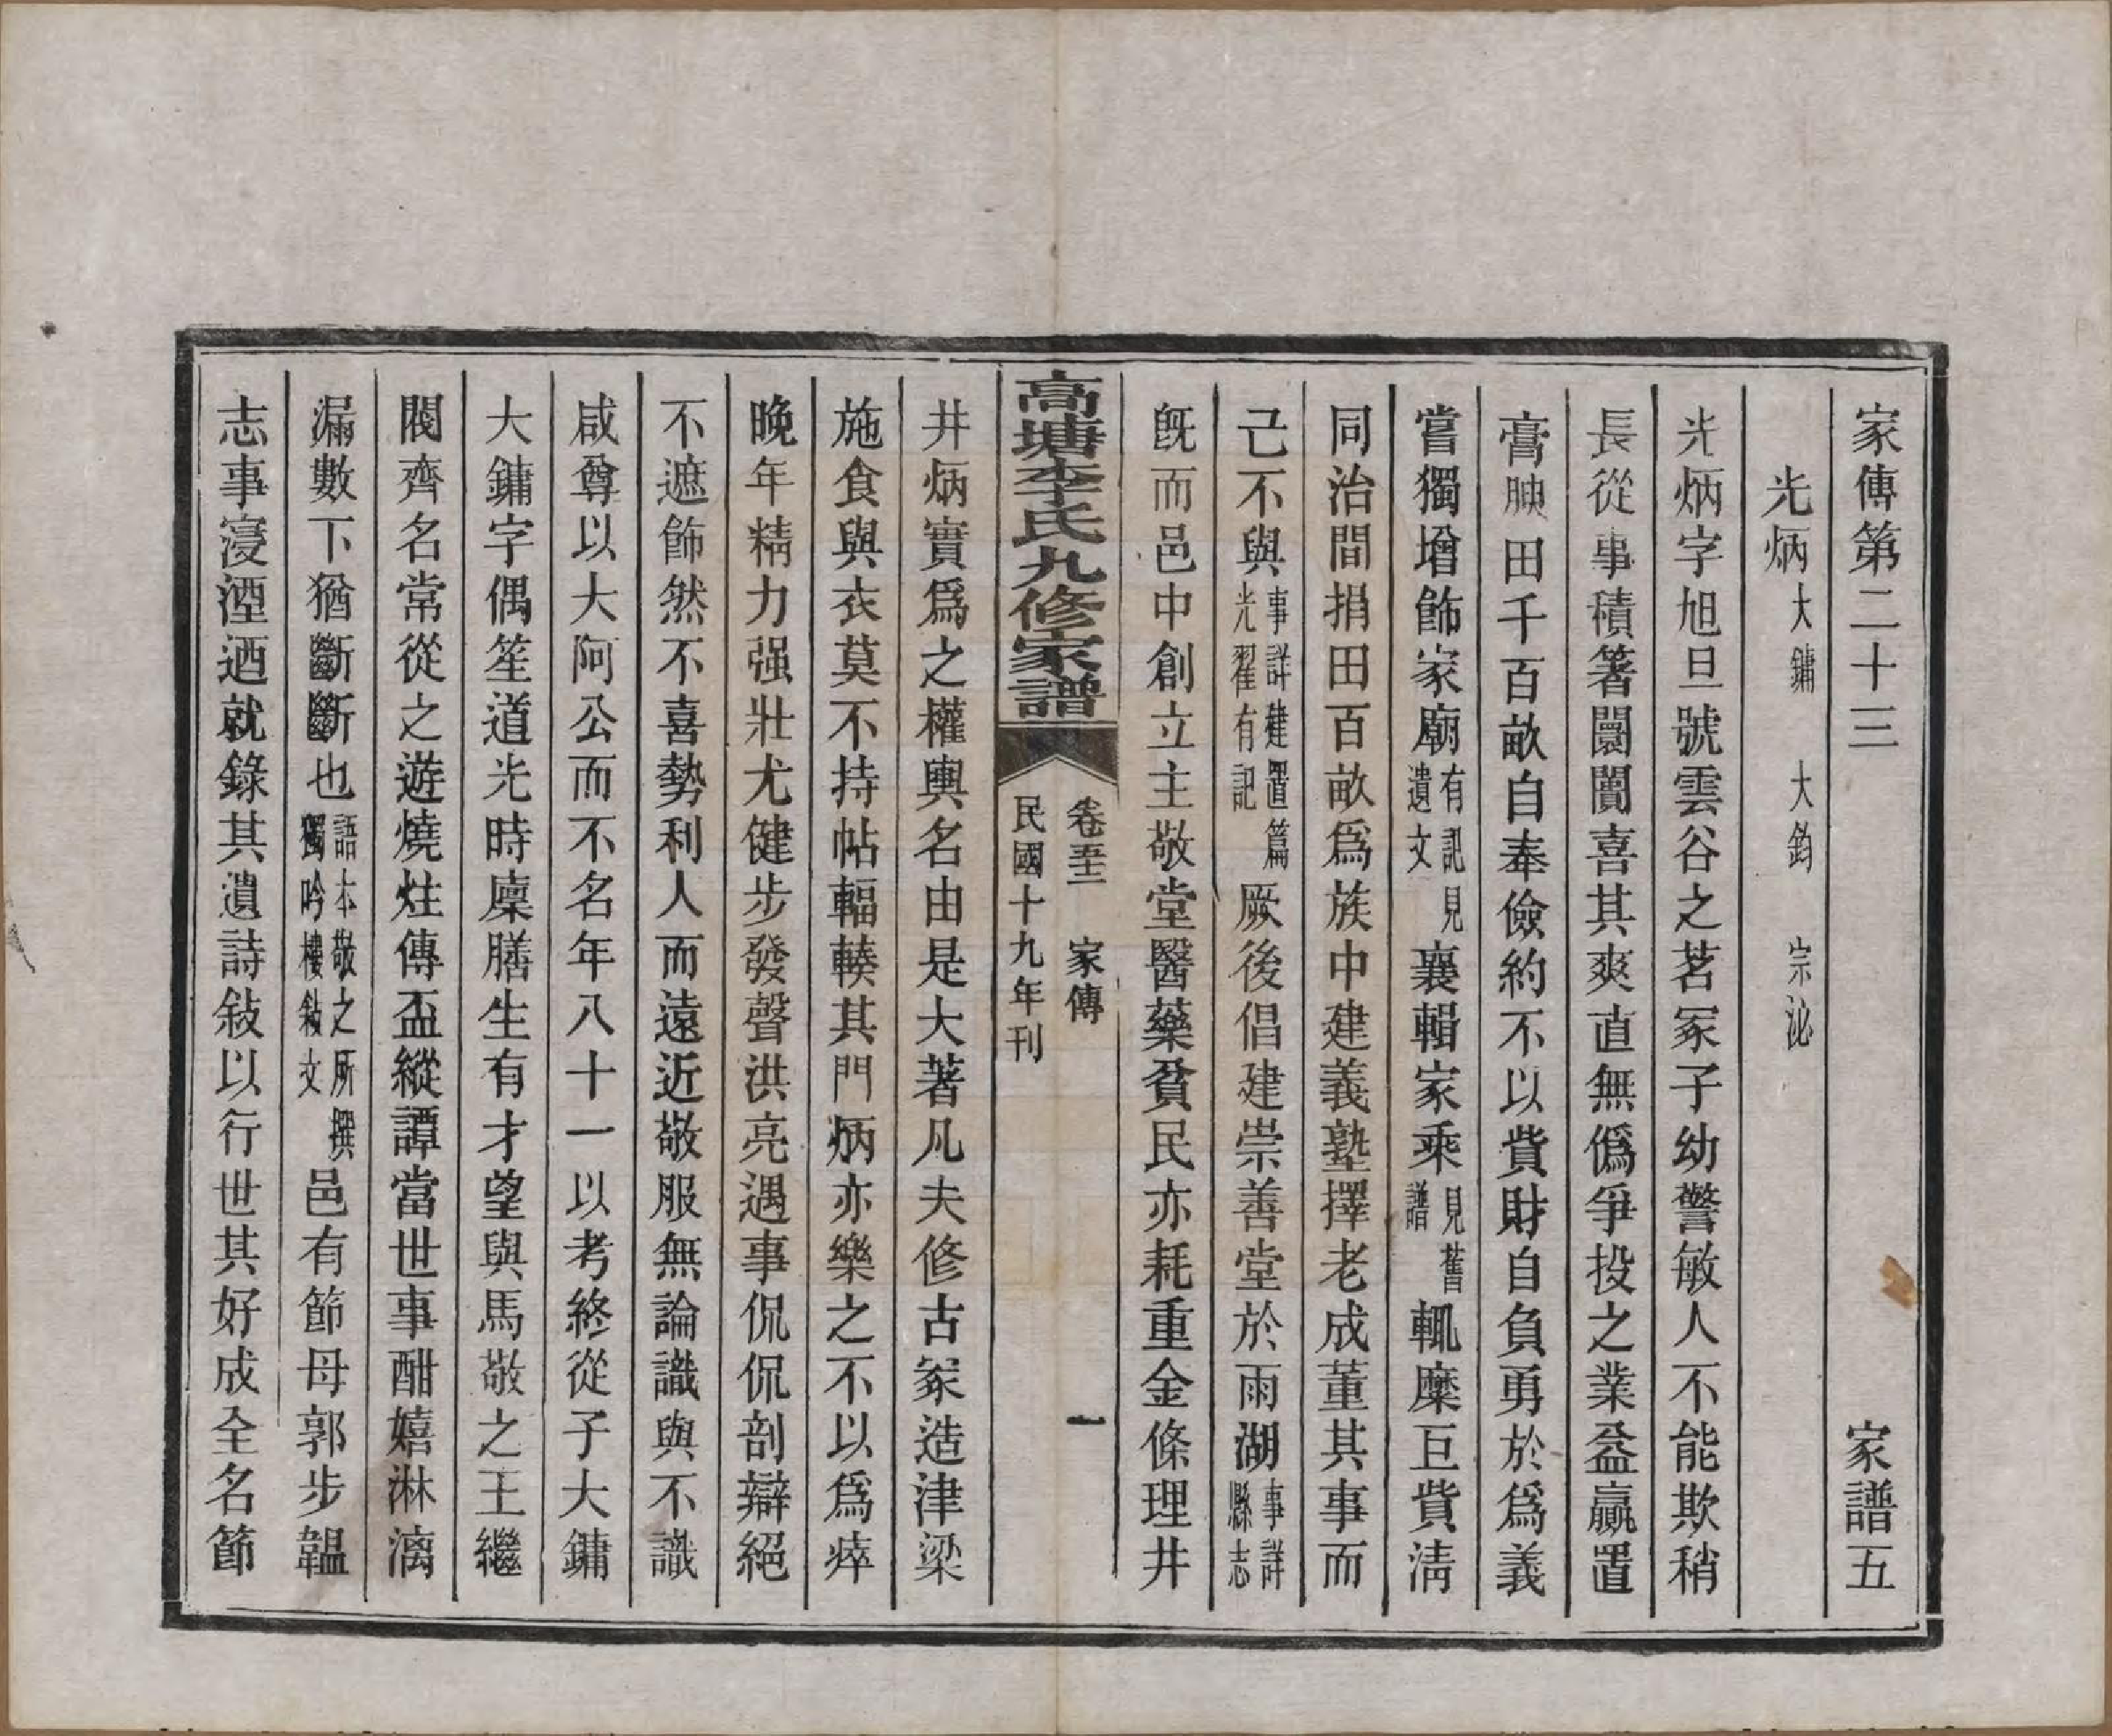 家傳第二十三　家譜五
光炳　大鏞　大鈞　宗泌
光炳字旭旦號雲谷之茗冢子幼警敏人不能欺稍
長從事積箸闤闠喜其爽直無僞爭投之業益贏置
膏腴田千百畝自奉儉約不以貲財自負勇於爲義
嘗獨增飾家廟有記見遺文襄輯家乘見舊譜輒糜巨貲淸
同治間捐田百畝爲族中建義塾擇老成董其事而
己不與事詳建置篇光翟有記厥後倡建崇善堂於雨湖事詳縣志
旣而邑中創立主敬堂醫藥貧民亦耗重金條理井
高塘李氏九修家譜　卷五十二　家傳　一　民國十九年刊
井炳實爲之權輿名由是大著凡夫修古冢造津梁
施食與衣莫不持帖輻輳其門炳亦樂之不以爲瘁
晚年精力强壯尤健步發聲洪亮遇事侃侃剖辯絕
不遮飾然不喜勢利人而遠近敬服無論識與不識
咸尊以大阿公而不名年八十一以考終從子大鏞
大鏞字偶笙道光時廩膳生有才望與馬敬之王繼
閥齊名常從之遊燒炷傳盃縱譚當世事酣嬉淋漓
漏數下猶斷斷也語本敬之所撰獨吟樓敍文邑有節母郭步韞
志事寖湮迺就錄其遺詩敍以行世其好成全名節